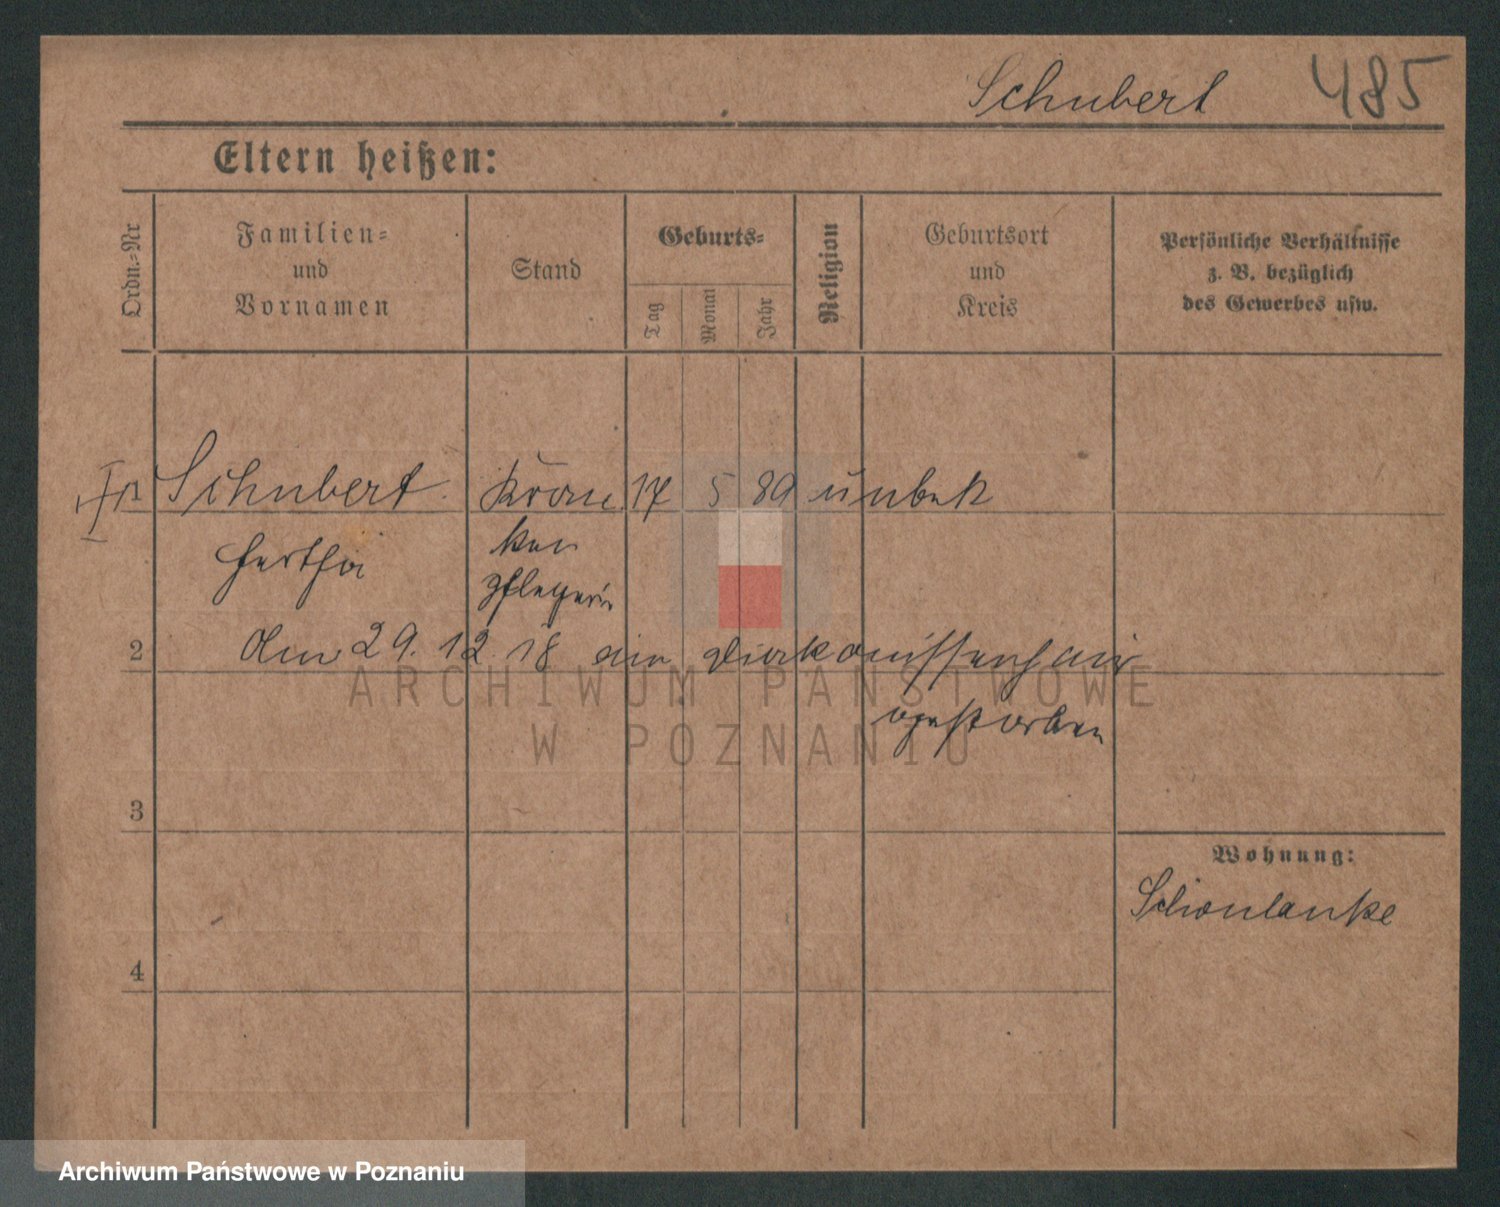 Schubert 485
Eltern heißen:
Ordn.-Nr
Familien-
und
Vornamen
Stand
Geburts-
Tag
Monat
Jahr
Religion
Geburtsort
und
Kreis
Persönliche Verhältnisse
z. B. bezüglich
des Gewerbes usw.
1 Schubert Kran 17 5 89 unbek
Hertha ken
pflegerin
2 Am 29. 12. 18 im Diakonissenhaus
gestorben
ARCHIWUM PAŃSTWOWE
W POZNANIU
3
Wohnung:
Schönlanke
4
Archiwum Państwowe w Poznaniu